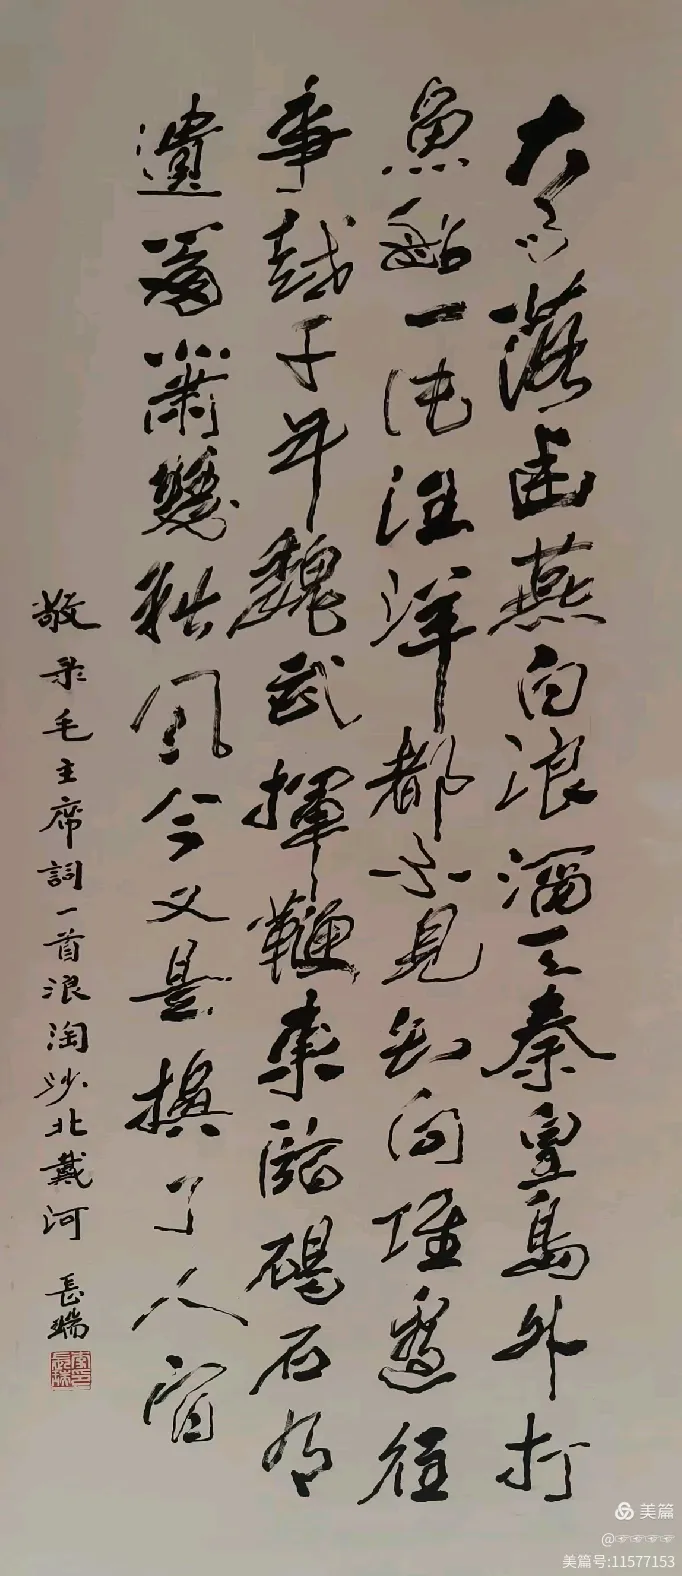 大雨落幽燕白浪滔天秦皇島外打
魚船一片汪洋都不見知向誰邊往
事越千年魏武揮鞭東臨碣石有
遺篇蕭瑟秋風今又是換了人間
敬录毛主席詞一首浪淘沙北戴河 長瑞
美篇
美篇号:11577153